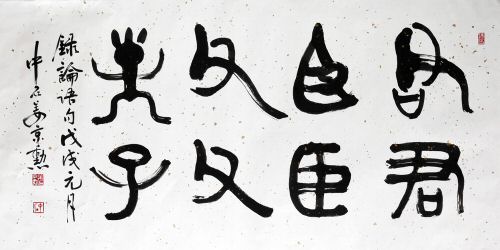 君君
臣臣
父父
子子
録論語句戊戌元月
中石姜京勲